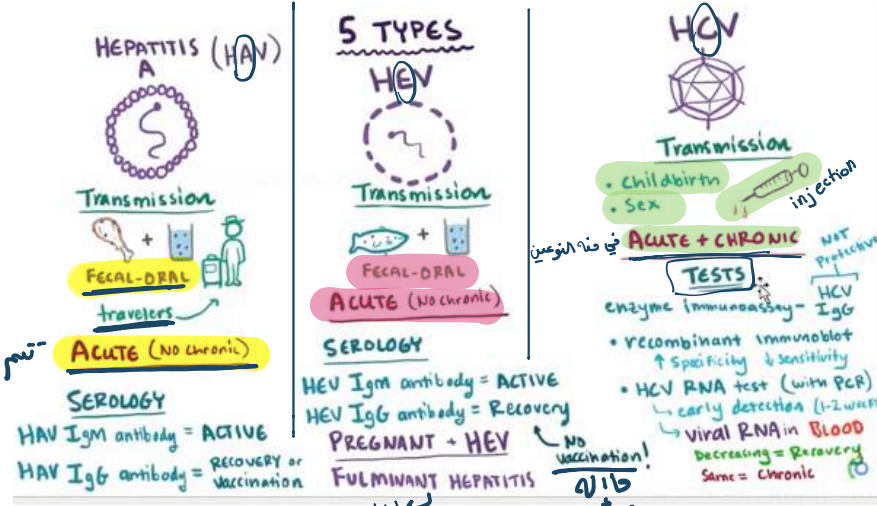 5 TYPES
HEPATITIS (HAV)
A
Transmission
+
FECAL-ORAL
travelers
ACUTE (No chronic)
SEROLOGY
HAV IgM antibody = ACTIVE
HAV IgG antibody = RECOVERY or vaccination
HEV
Transmission
+
FECAL-ORAL
ACUTE (No chronic)
SEROLOGY
HEV IgM antibody = ACTIVE
HEV IgG antibody = Recovery
No vaccination!
PREGNANT + HEV
FULMINANT HEPATITIS
HCV
Transmission
• Childbirth
• Sex
injection
ACUTE + CHRONIC
في منه النوعين
TESTS
NOT Protective
enzyme immunoassay - HCV IgG
• recombinant immunoblot
↑ Specificity ↓ sensitivity
• HCV RNA test (with PCR)
↳ early detection (1-2 weeks
↳ viral RNA in BLOOD
Decreasing = Recovery
Same = Chronic